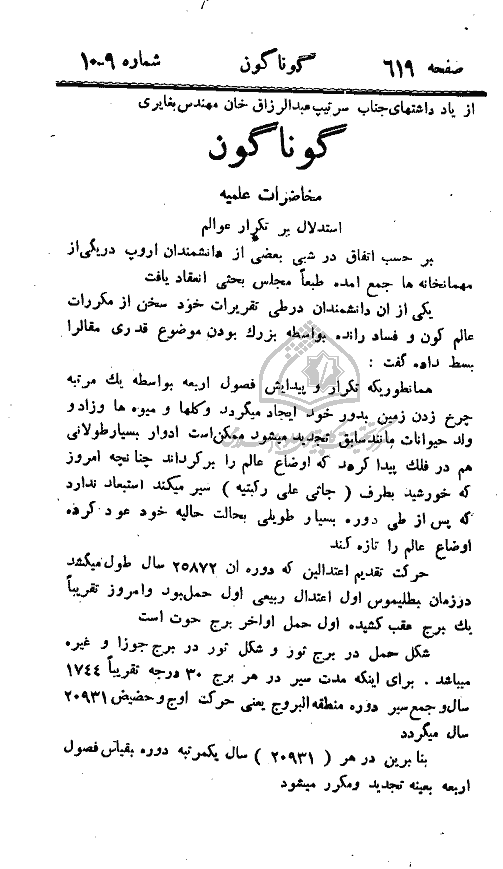 صفحه ۶۱۹ گوناگون شماره ۹-۱۰
از یاد داشتهای جناب سرتیپ عبدالرزاق خان مهندس بغایری
گوناگون
مخاضرات علمیه
استدلال بر تکرار عوالم
بر حسب اتفاق در شبی بعضی از دانشمندان اروپ در یکی از
مهمانخانه ها جمع امده طبعاً مجلس بحثی انعقاد یافت
یکی از ان دانشمندان درطی تقریرات خود سخن از مکررات
عالم کون و فساد رانده بواسطه بزرك بودن موضوع قدری مقالرا
بسط داده گفت :
همانطوریکه تکرار و پیدایش فصول اربعه بواسطه یك مرتبه
چرخ زدن زمین بدور خود ایجاد میگردد وکلها و میوه ها وزادو
ولد حیوانات مانند سابق تجدید میشود ممکن است ادوار بسیار طولانی
هم در فلك پیدا کردد که اوضاع عالم را برکرداند چنانچه امروز
که خورشید بطرف ( جاثی علی رکبتیه ) سیر میکند استبعاد ندارد
که پس از طی دوره بسیار طویلی بحالت حالیه خود عود کرده
اوضاع عالم را تازه کند
حرکت تقدیم اعتدالین که دوره ان ۲۵۸۷۲ سال طول میکشد
درزمان بطلیموس اول اعتدال ربیعی اول حمل بود وامروز تقریباً
یك برج عقب کشیده اول حمل اواخر برج حوت است
شکل حمل در برج ثور و شکل ثور در برج جوزا و غیره
میباشد . برای اینکه مدت سیر در هر برج ۳۰ درجه تقریباً ۱۷۴۴
سال و جمع سیر دوره منطقه البروج یعنی حرکت اوج و حضیض ۲۰۹۳۱
سال میگردد
بنا برین در هر ( ۲۰۹۳۱ ) سال یکمرتبه دوره بقیاس فصول
اربعه بعینه تجدید ومکرر میشود